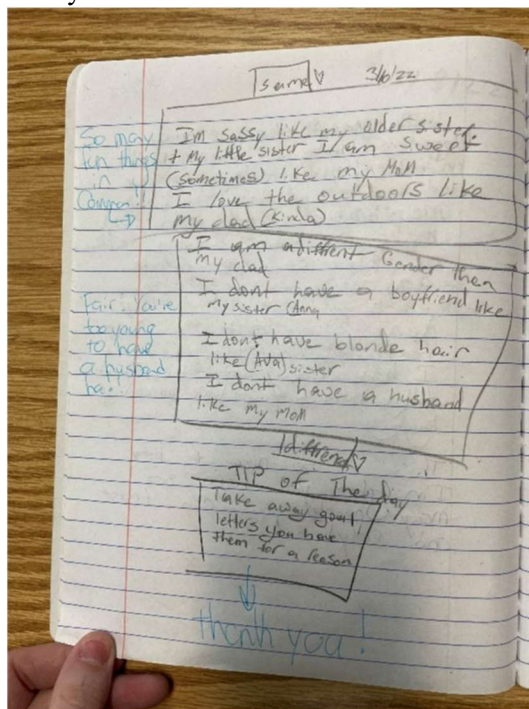 same ♡ 3/6/22
So many
fun things
in
Common!
Im sassy like my older sister.
+ My little sister I am sweet
(sometimes) like my MoM
I love the outdoors like
my dad (kinda)
I am a diffrent Gender then
my dad
I dont have a boyfriend like
my sister (Anna
I dont have blonde hair
like (AVa) sister
I dont have a husband
like my MoM
Fair. You're
too young
to have
a husband
ha!
diffrent ♡
TIP of The day
Take away
letters you have
them for a reason
thank you!